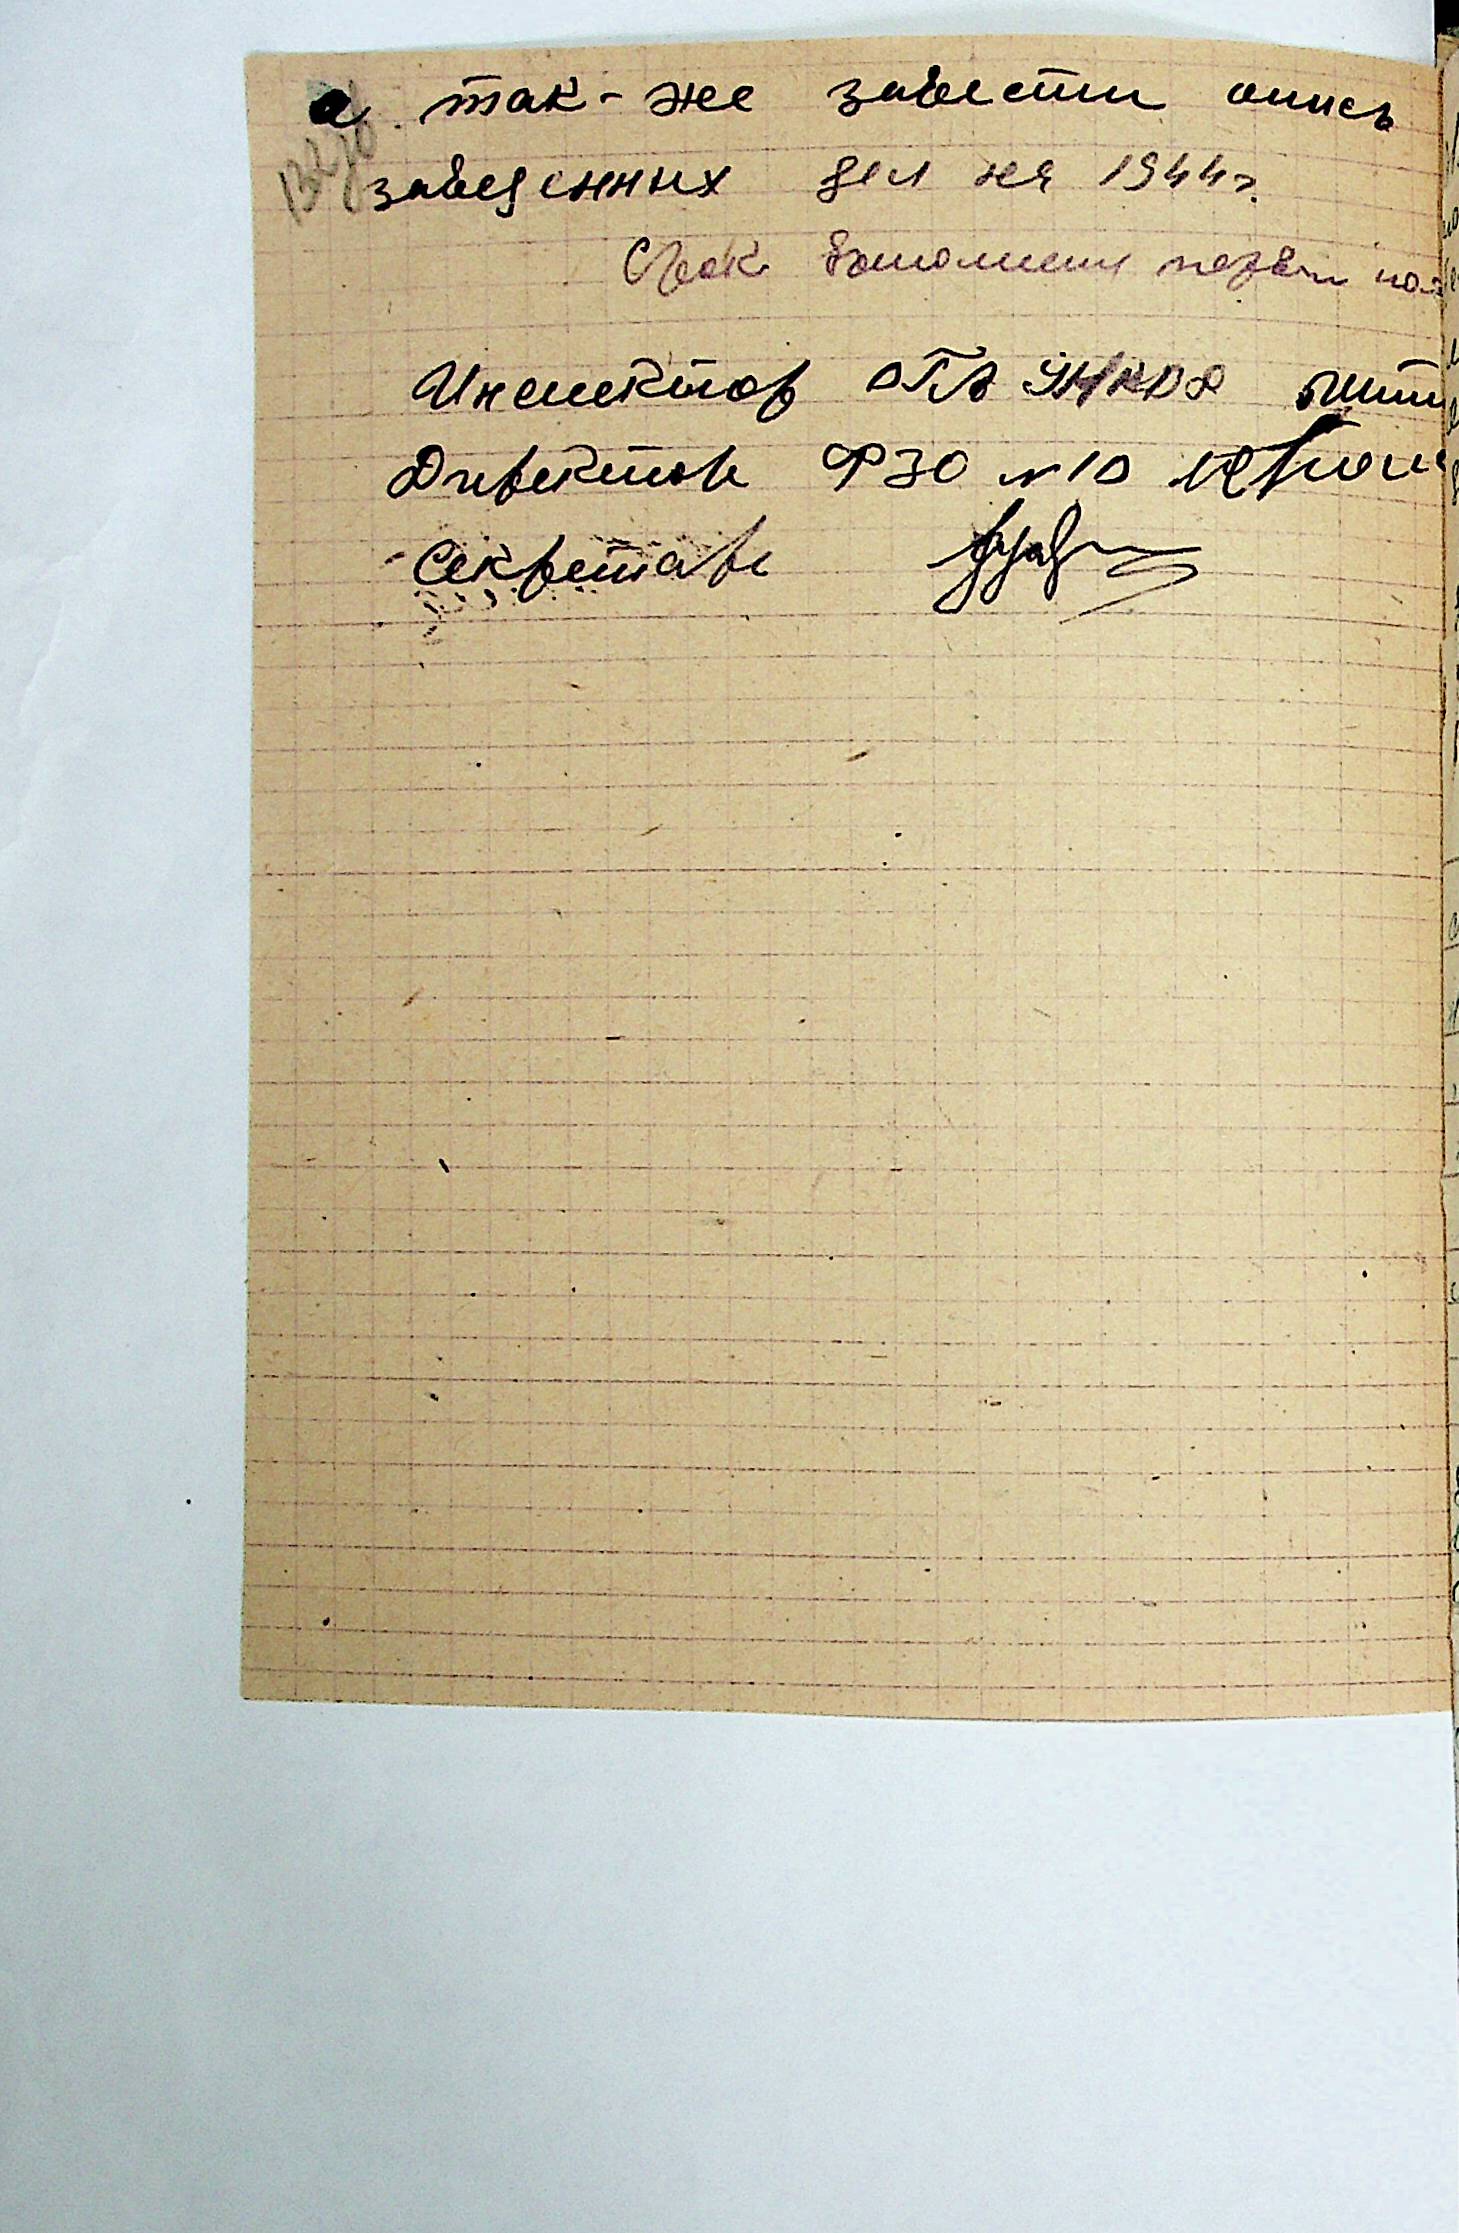 а так-же завести опись
заведенных дел на 1944г.
Срок выполнения первый
Инспектор УНКВД
Директор ФЗО №10
Секретарь